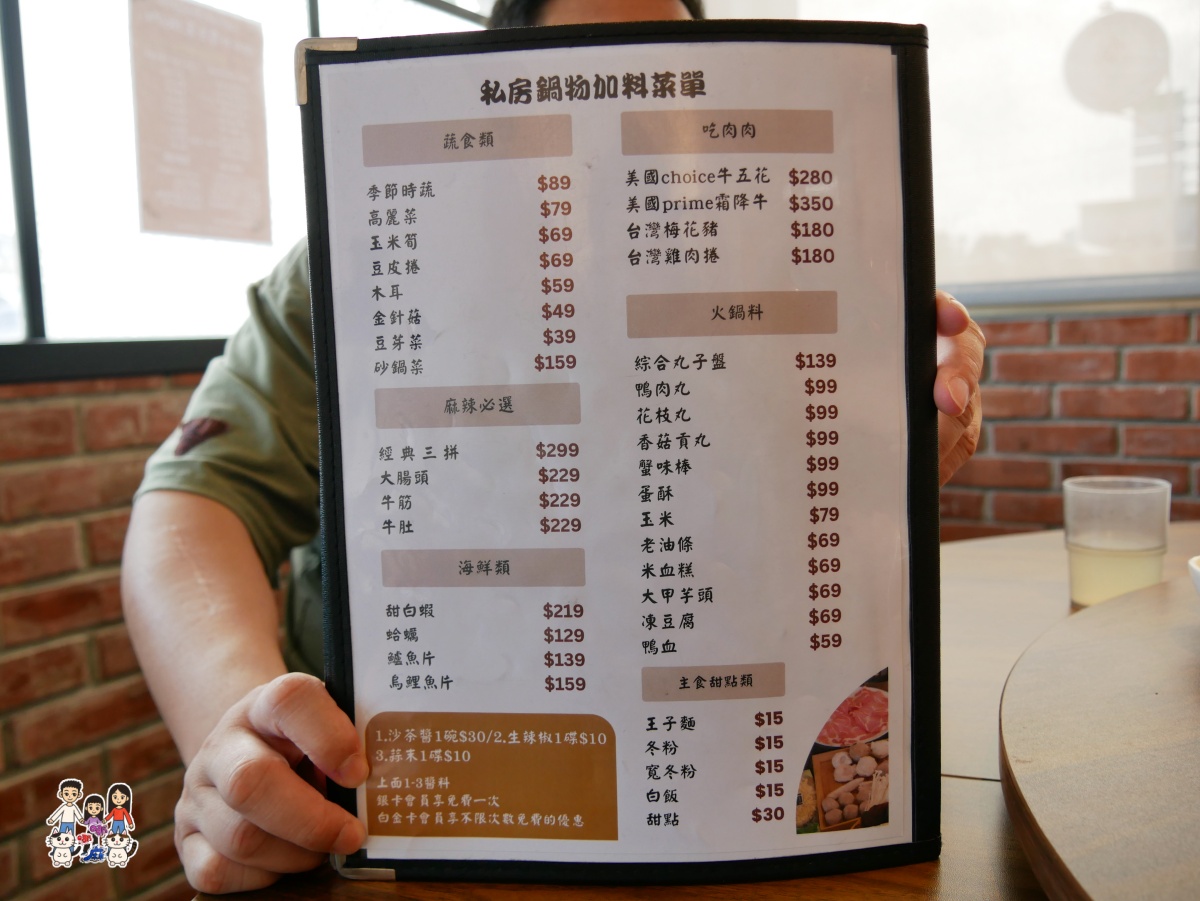 私房鍋物加料菜單
蔬食類
季節時蔬 $89
高麗菜 $79
玉米筍 $69
豆皮捲 $69
木耳 $59
金針菇 $49
豆芽菜 $39
砂鍋菜 $159
麻辣必選
經典三拼 $299
大腸頭 $229
牛筋 $229
牛肚 $229
海鮮類
甜白蝦 $219
蛤蠣 $129
鱸魚片 $139
烏鯉魚片 $159
1.沙茶醬1碗$30/2.生辣椒1碟$10
3.蒜末1碟$10
上面1-3醬料
銀卡會員享免費一次
白金卡會員享不限次數免費的優惠
吃肉肉
美國choice牛五花 $280
美國prime霜降牛 $350
台灣梅花豬 $180
台灣雞肉捲 $180
火鍋料
綜合丸子盤 $139
鴨肉丸 $99
花枝丸 $99
香菇貢丸 $99
蟹味棒 $99
蛋酥 $99
玉米 $79
老油條 $69
米血糕 $69
大甲芋頭 $69
凍豆腐 $69
鴨血 $59
主食甜點類
王子麵 $15
冬粉 $15
寬冬粉 $15
白飯 $15
甜點 $30